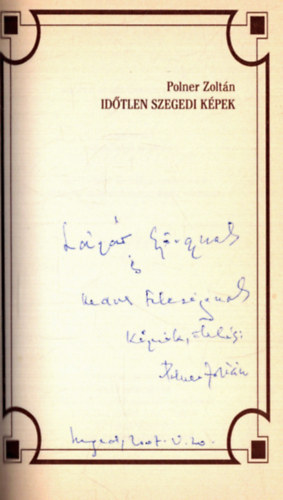 Polner Zoltán
IDŐTLEN SZEGEDI KÉPEK
Lázár Györgynek
és
kedves Feleségének
Polner Zoltán
Szeged, 2001. V. 20.